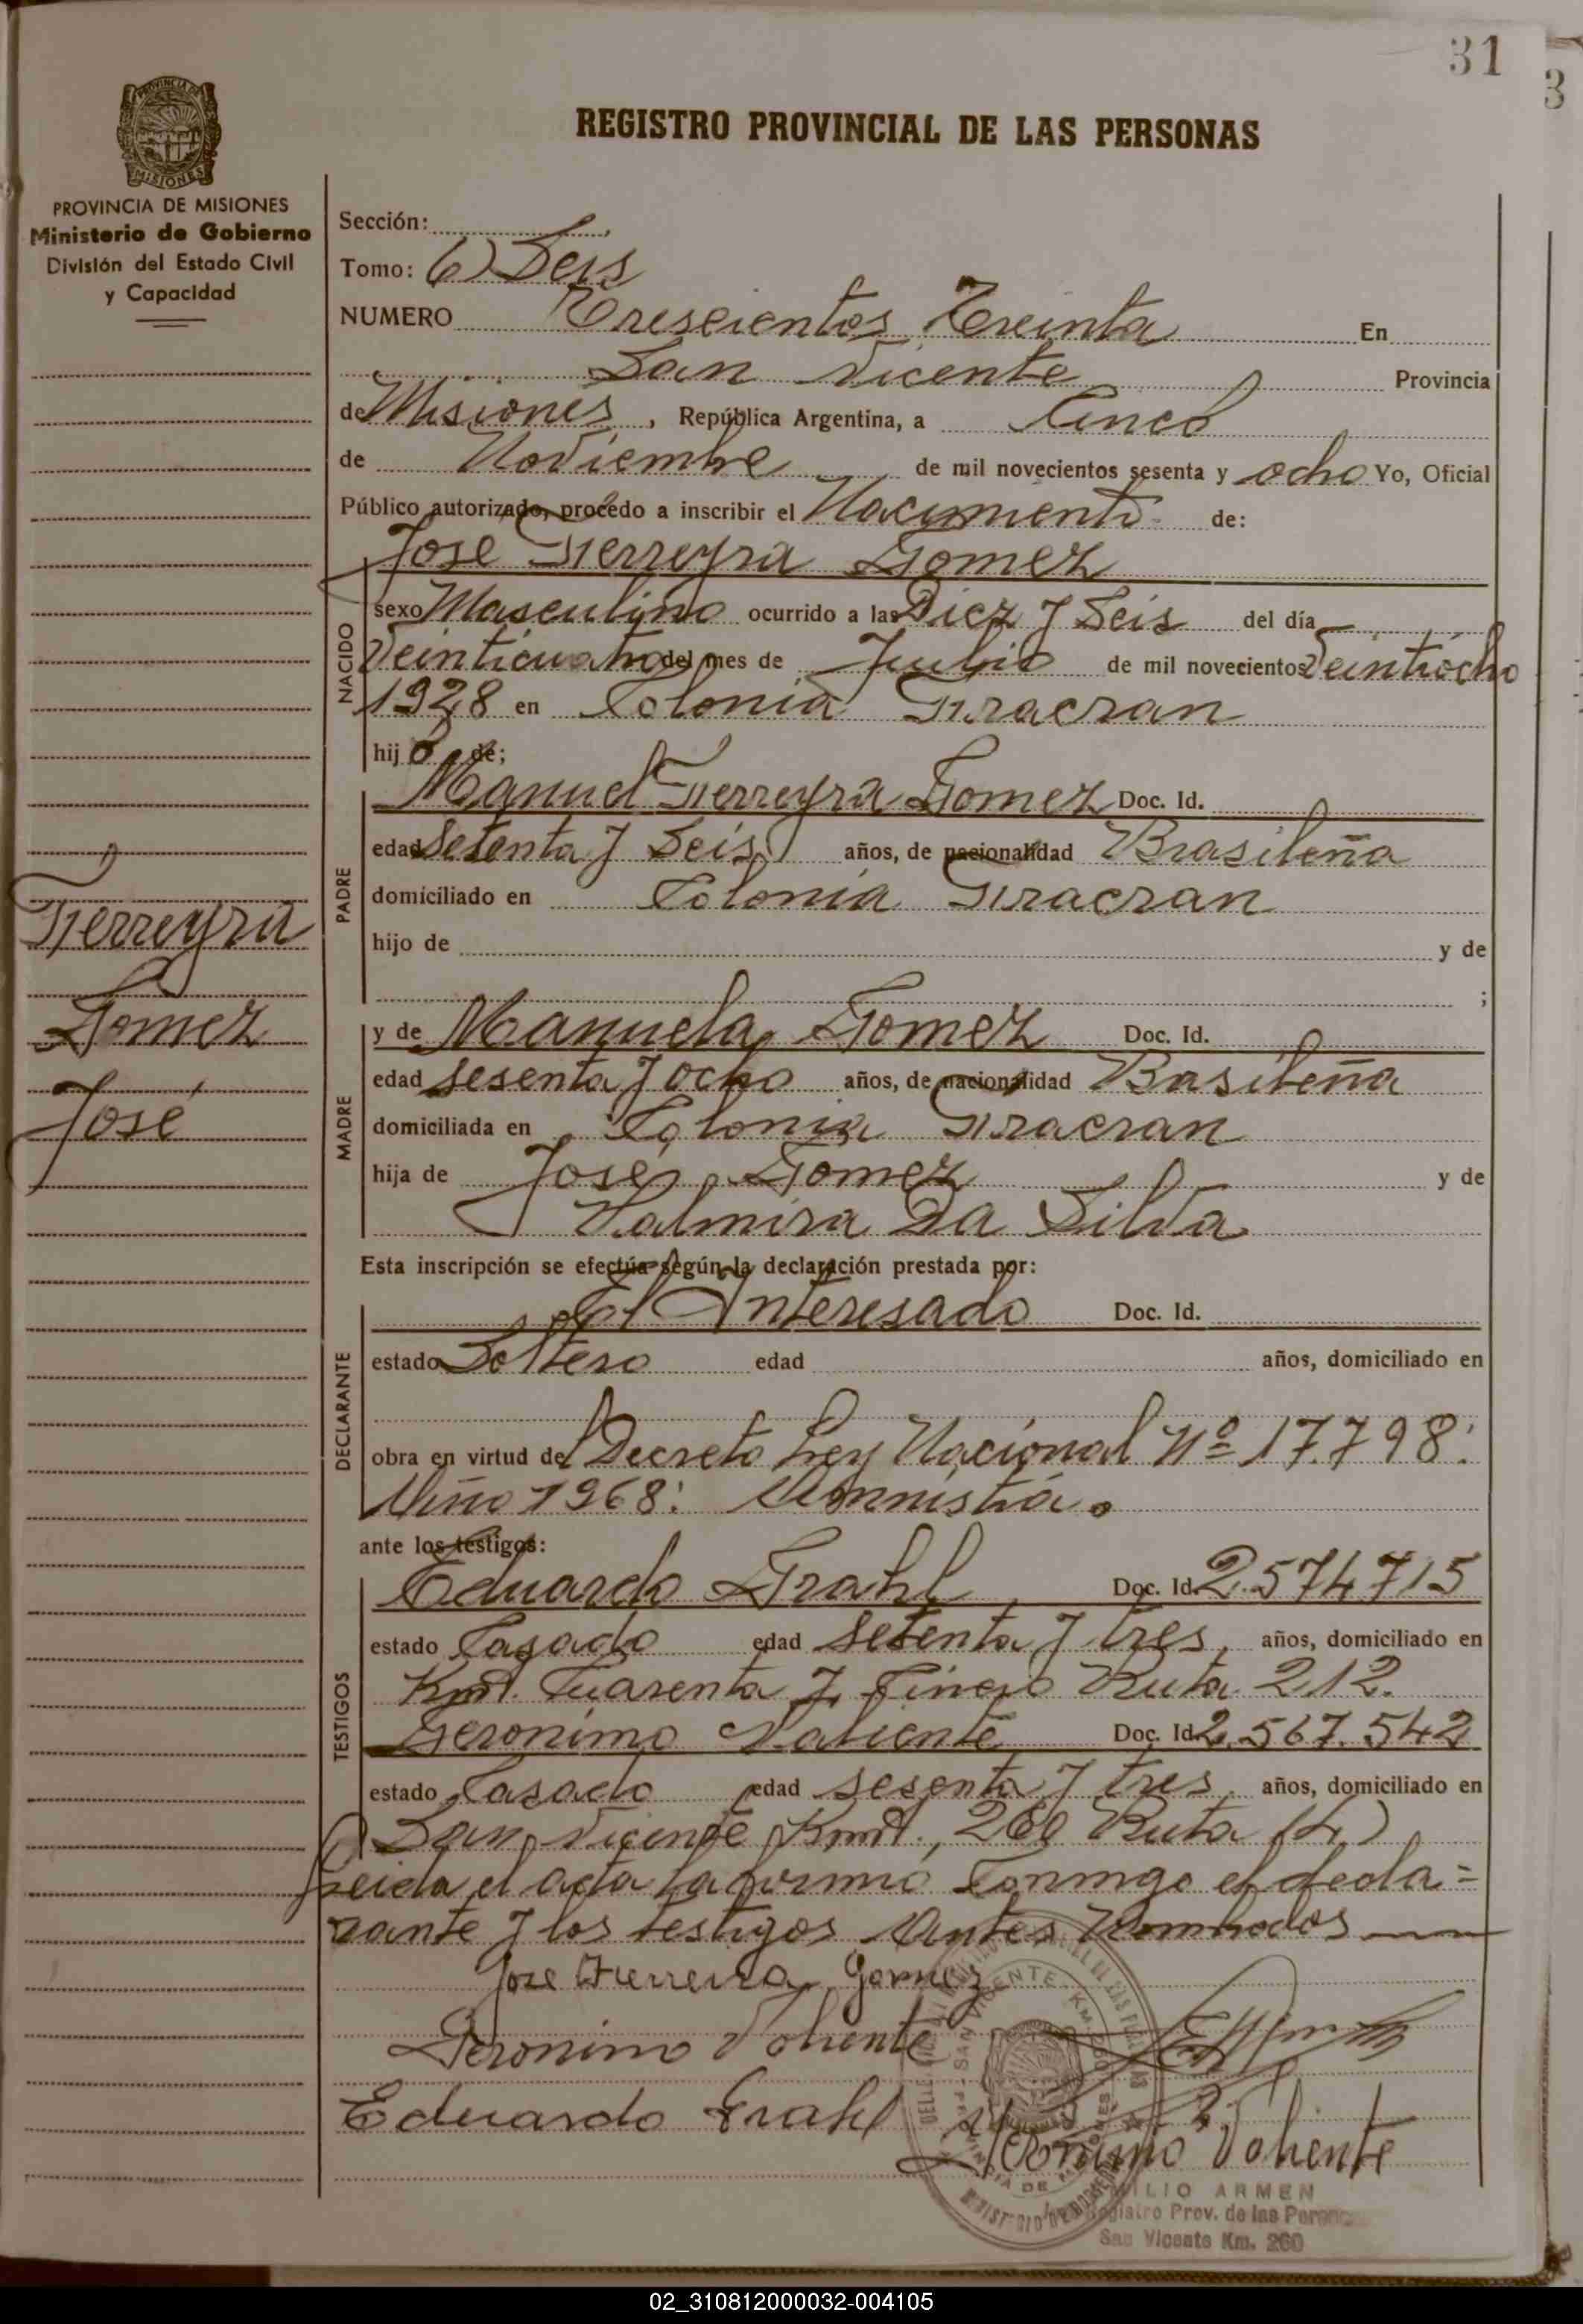 31
3
PROVINCIA DE
MISIONES
REGISTRO PROVINCIAL DE LAS PERSONAS
PROVINCIA DE MISIONES
Ministerio de Gobierno
División del Estado Civil
y Capacidad
Sección:
Tomo: 6) Seis
NUMERO Trescientos Treinta En
San Vicente Provincia
de Misiones, República Argentina, a Cinco
de Noviembre de mil novecientos sesenta y ocho Yo, Oficial
Público autorizado, procedo a inscribir el Nacimiento de:
NACIDO
Jose Ferreyra Gomez
sexo Masculino ocurrido a las Diez y Seis del día
Veinticuatro del mes de Julio de mil novecientos Veintiocho
1928 en Colonia Fracran
hijo de;
PADRE
Manuel Ferreyra Gomez Doc. Id.
edad Setenta y Seis años, de nacionalidad Brasileña
domiciliado en Colonia Fracran
hijo de y de
;
Ferreyra
Gomez
José
MADRE
y de Manuela Gomez Doc. Id.
edad sesenta y ocho años, de nacionalidad Basileña
domiciliada en Colonia Fracran
hija de José Gomez y de
Valmira Da Silva
Esta inscripción se efectúa según la declaración prestada por:
DECLARANTE
El Interesado Doc. Id.
estado Soltero edad años, domiciliado en
obra en virtud del Decreto Ley Nacional Nº 17.798:
Año 1968: Amnistia.
ante los testigos:
TESTIGOS
Eduardo Grahl Doc. Id. 2.574715
estado Casado edad setenta y tres, años, domiciliado en
Kmt. Cuarenta y Cinco Ruta 212.
Geronimo Valiente Doc. Id. 2.567.542
estado Casado edad sesenta y tres, años, domiciliado en
San Vicente Kmt., 260 Ruta (4)
Leida el acta la firma Conmigo el decla=
rante y los testigos Antes Nombrados
Jose Ferreira Gomez
Geronimo Valiente
Eduardo Grahl
Geronimo Valiente
ILIO ARMEN
Registro Prov. de las Person
San Vicente Km. 260
02_310812000032-004105